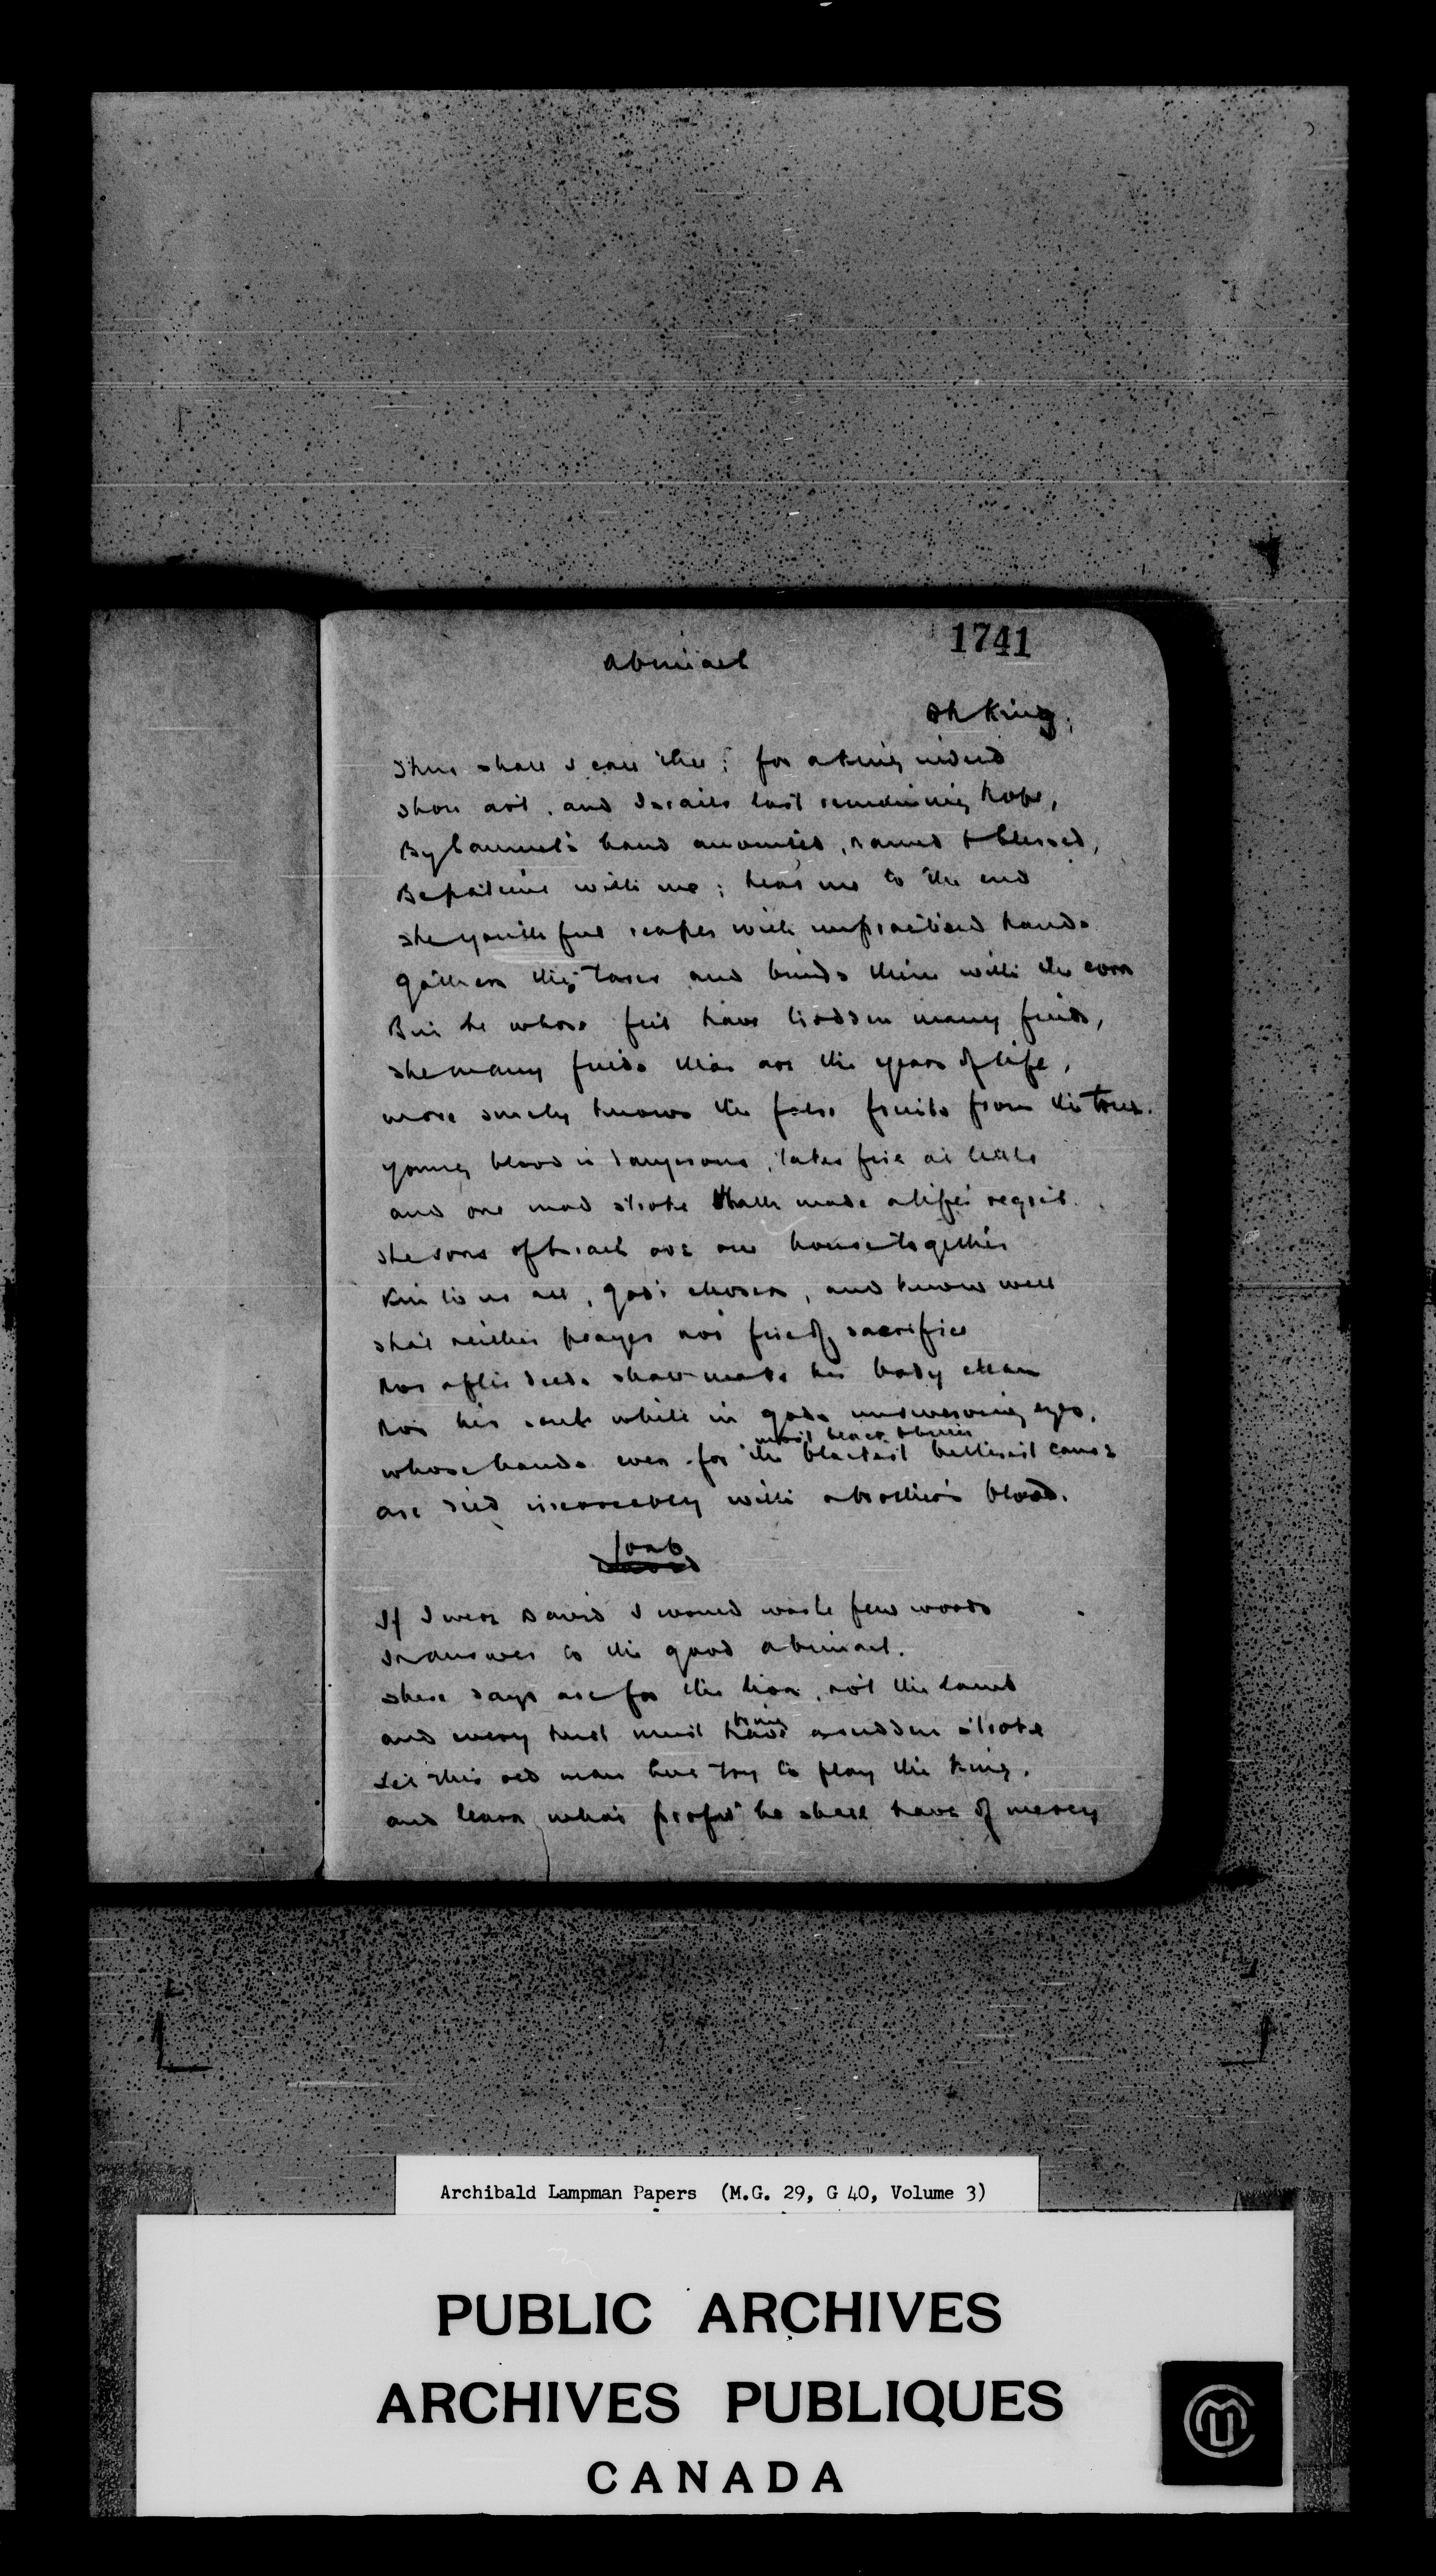 1741
Abiniael
Oh King,
Thus shall I call thee; for a king indeed
Thou art, and Israels last remaining hope,
By Samuel's hand anointed, named & blessed,
Be patient with me; hear me to the end
The youthful reaper with unpractised hands
Gathers the tares and binds them with the corn
But he whose feet have trodden many fields,
The many fields that are the years of life,
more surely knows the false fruits from the true.
Young blood is dangerous, takes fire at little
and one mad stroke hath made a life's regret.
The sons of Israel are one house together
Kin to us all, god's chosen, and know well
That neither prayer nor fire of sacrifice
Nor after deeds shall make his body clean
Nor his soul white in gods unswerving eyes,
most black & bitter
whose hands even for the blackest bitterest cause
are died irrevocably with a brother's blood.
Joab
If I were David I would waste few words
In answer to the good Abiniael.
These days are for the lion, not the lamb
bring
and every hurt must have a sudden stroke
Let this old man here try to play the king,
and learn what profit he shall have of mercy
Archibald Lampman Papers (M.G. 29, G 40, Volume 3)
PUBLIC ARCHIVES
ARCHIVES PUBLIQUES
CANADA